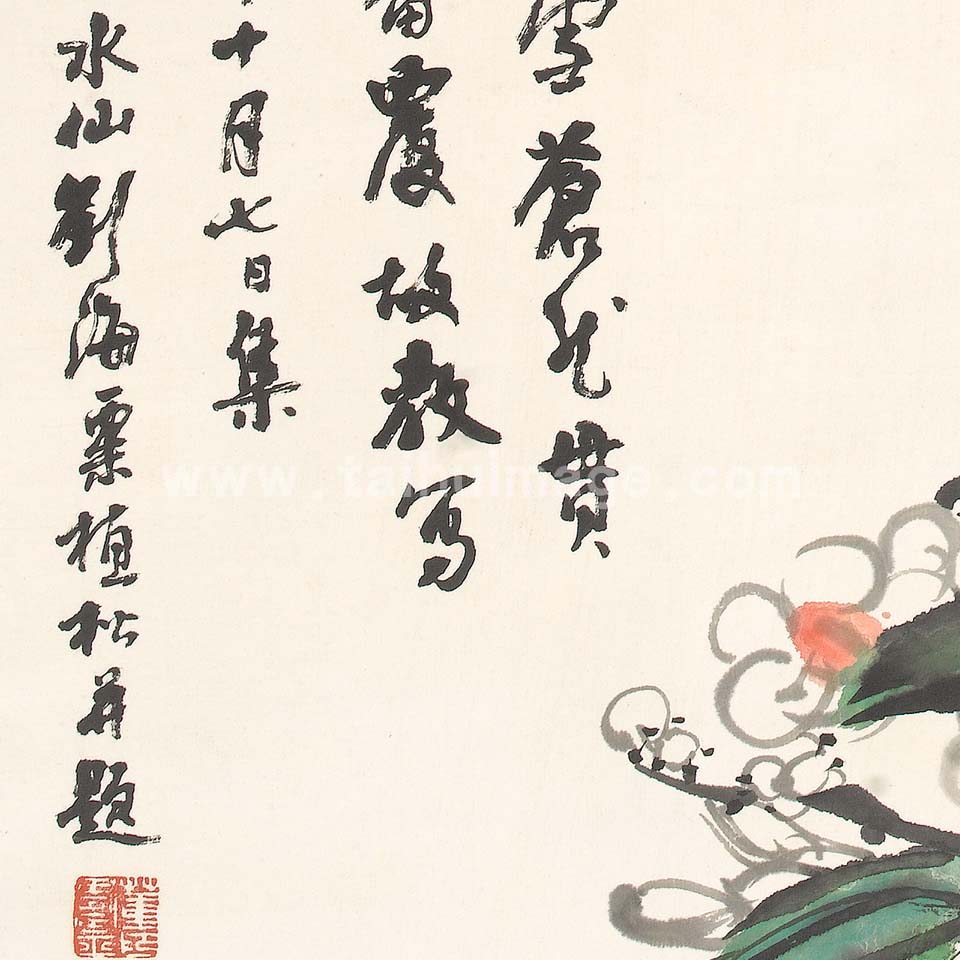 雪蒼貫
故教写
十月七日集
水仙劉海粟植松并題
www.taihuimage.com